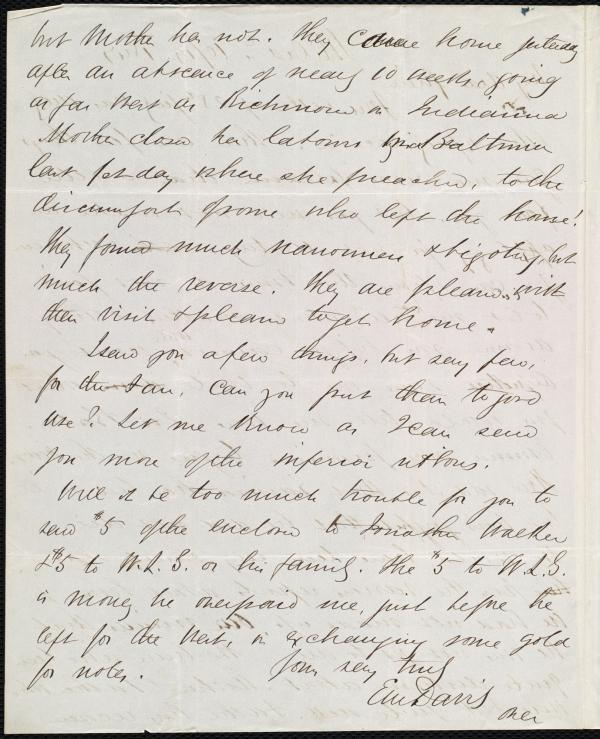 but Mother has not. They came home yesterday
after an absence of nearly 10 weeks going
as far West as Richmond in Indianna
Mother closed her labours in Baltimore
last 1st day where she preached, to the
discomfort of some who left the house!
They found much narrowness & bigotry, but
much the reverse. They are pleased with
their visit & pleased to get home.
I send you a few things, but very few,
for the Fair. Can you put them to good
use? Let me know as I can send
you more of the inferior ribbons.
Will it be too much trouble for you to
send $5 of the enclosed to Jonathan Walker
& $5 to W.L.G. or his family. The $5 to W.L.G.
is money he overpaid me, just before he
left for the West, in exchanging some gold
for notes. Yours very truly
EM Davis
over